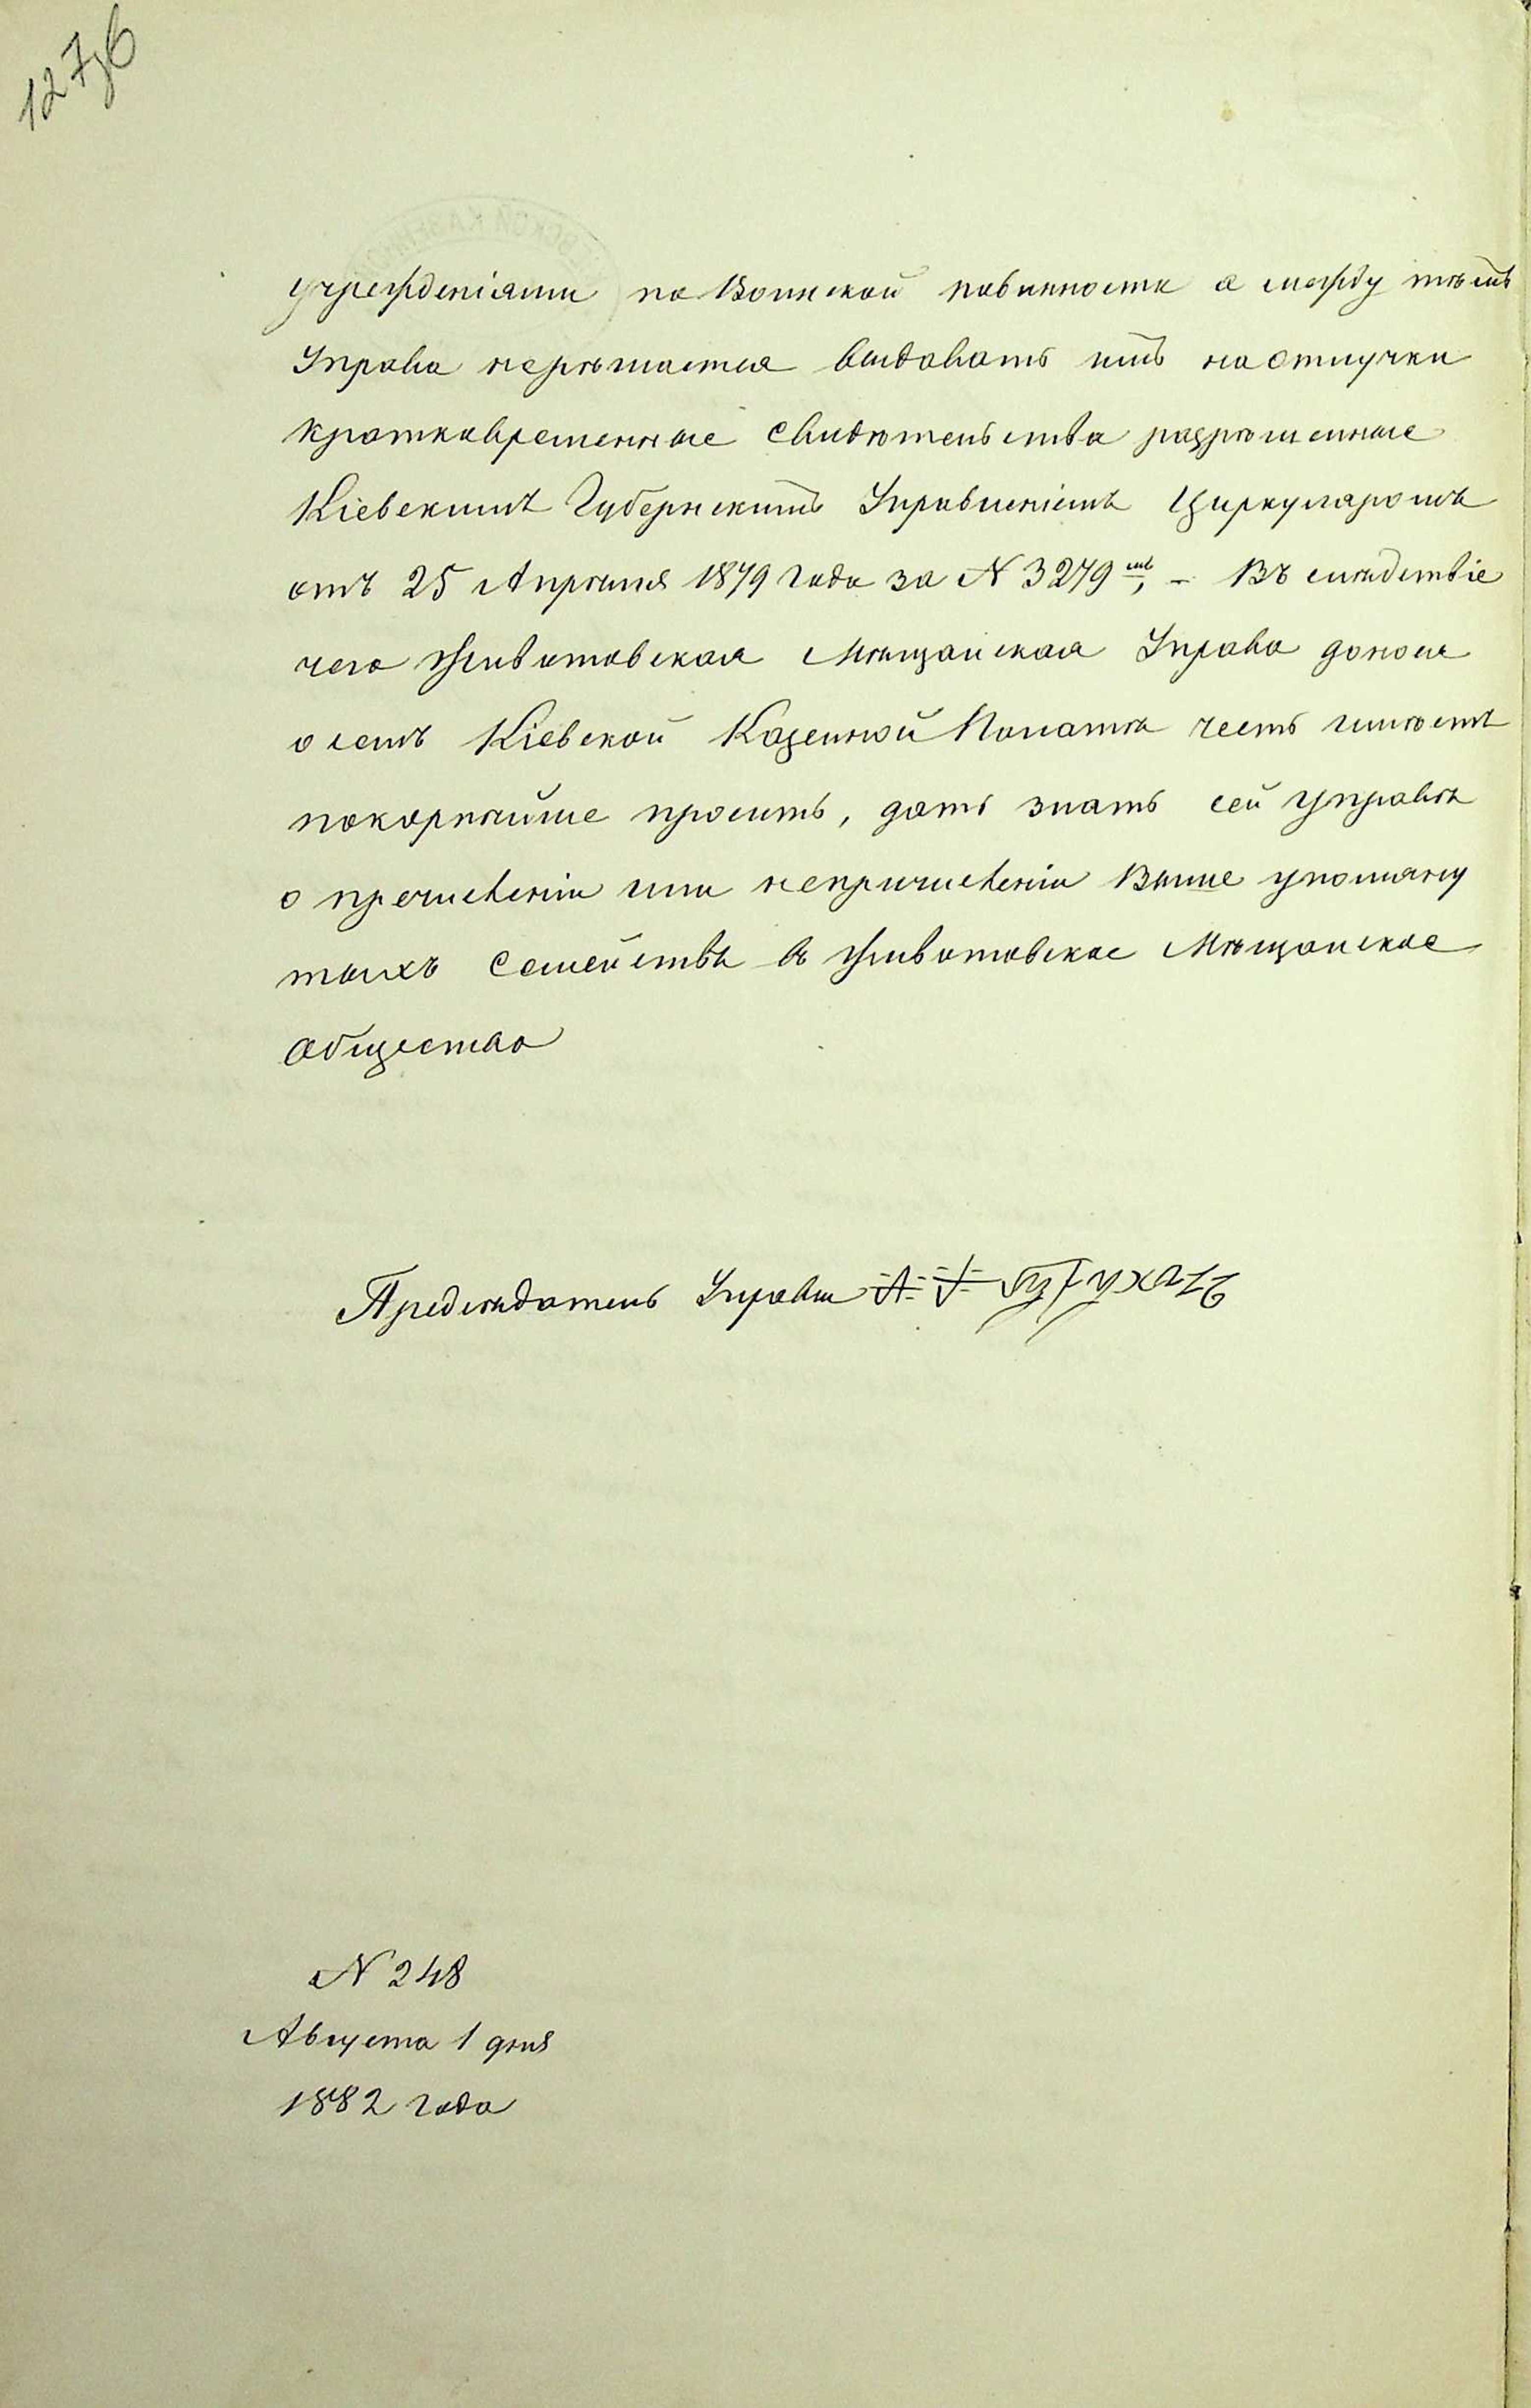 127об
учрежденіями по Воинской повинности а между тѣмъ
Управа нерѣшается выдавать имъ на отлучки
кратковременные свидѣтельства разрѣшенные
Кіевскимъ Губернскимъ Управленіемъ Циркуляромъ
отъ 25 Апрѣля 1879 года за N 3279мъ, - Въ слѣдствіе
чего Животовская Мѣщанская Управа донося
о семъ Кіевской Казенной Палатѣ честь имѣетъ
покорнѣйше просить, дать знать сей управѣ
о пречисленіи или непричисленіи Выше упомяну
тыхъ семействъ въ Животовское Мѣщанское
общество
Предсѣдатель Управы
N 248
Августа 1 дня
1882 года